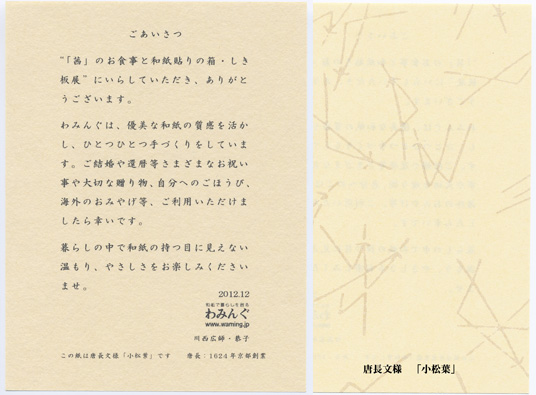 ごあいさつ
"「茜」のお食事と和紙貼りの箱・しき
板展"にいらしていただき、ありがと
うございます。
わみんぐは、優美な和紙の質感を活か
し、ひとつひとつ手づくりをしていま
す。ご結婚や還暦等さまざまなお祝い
事や大切な贈り物、自分へのごほうび、
海外のおみやげ等、ご利用いただけま
したら幸いです。
暮らしの中で和紙の持つ目に見えない
温もり、やさしさをお楽しみください
ませ。
2012.12
和紙で暮らしを創る
わみんぐ
www.waming.jp
川西広 ・恭子
この紙は唐長文様「小松葉」です 唐長:1624年京都創業
唐長文様 「小松葉」